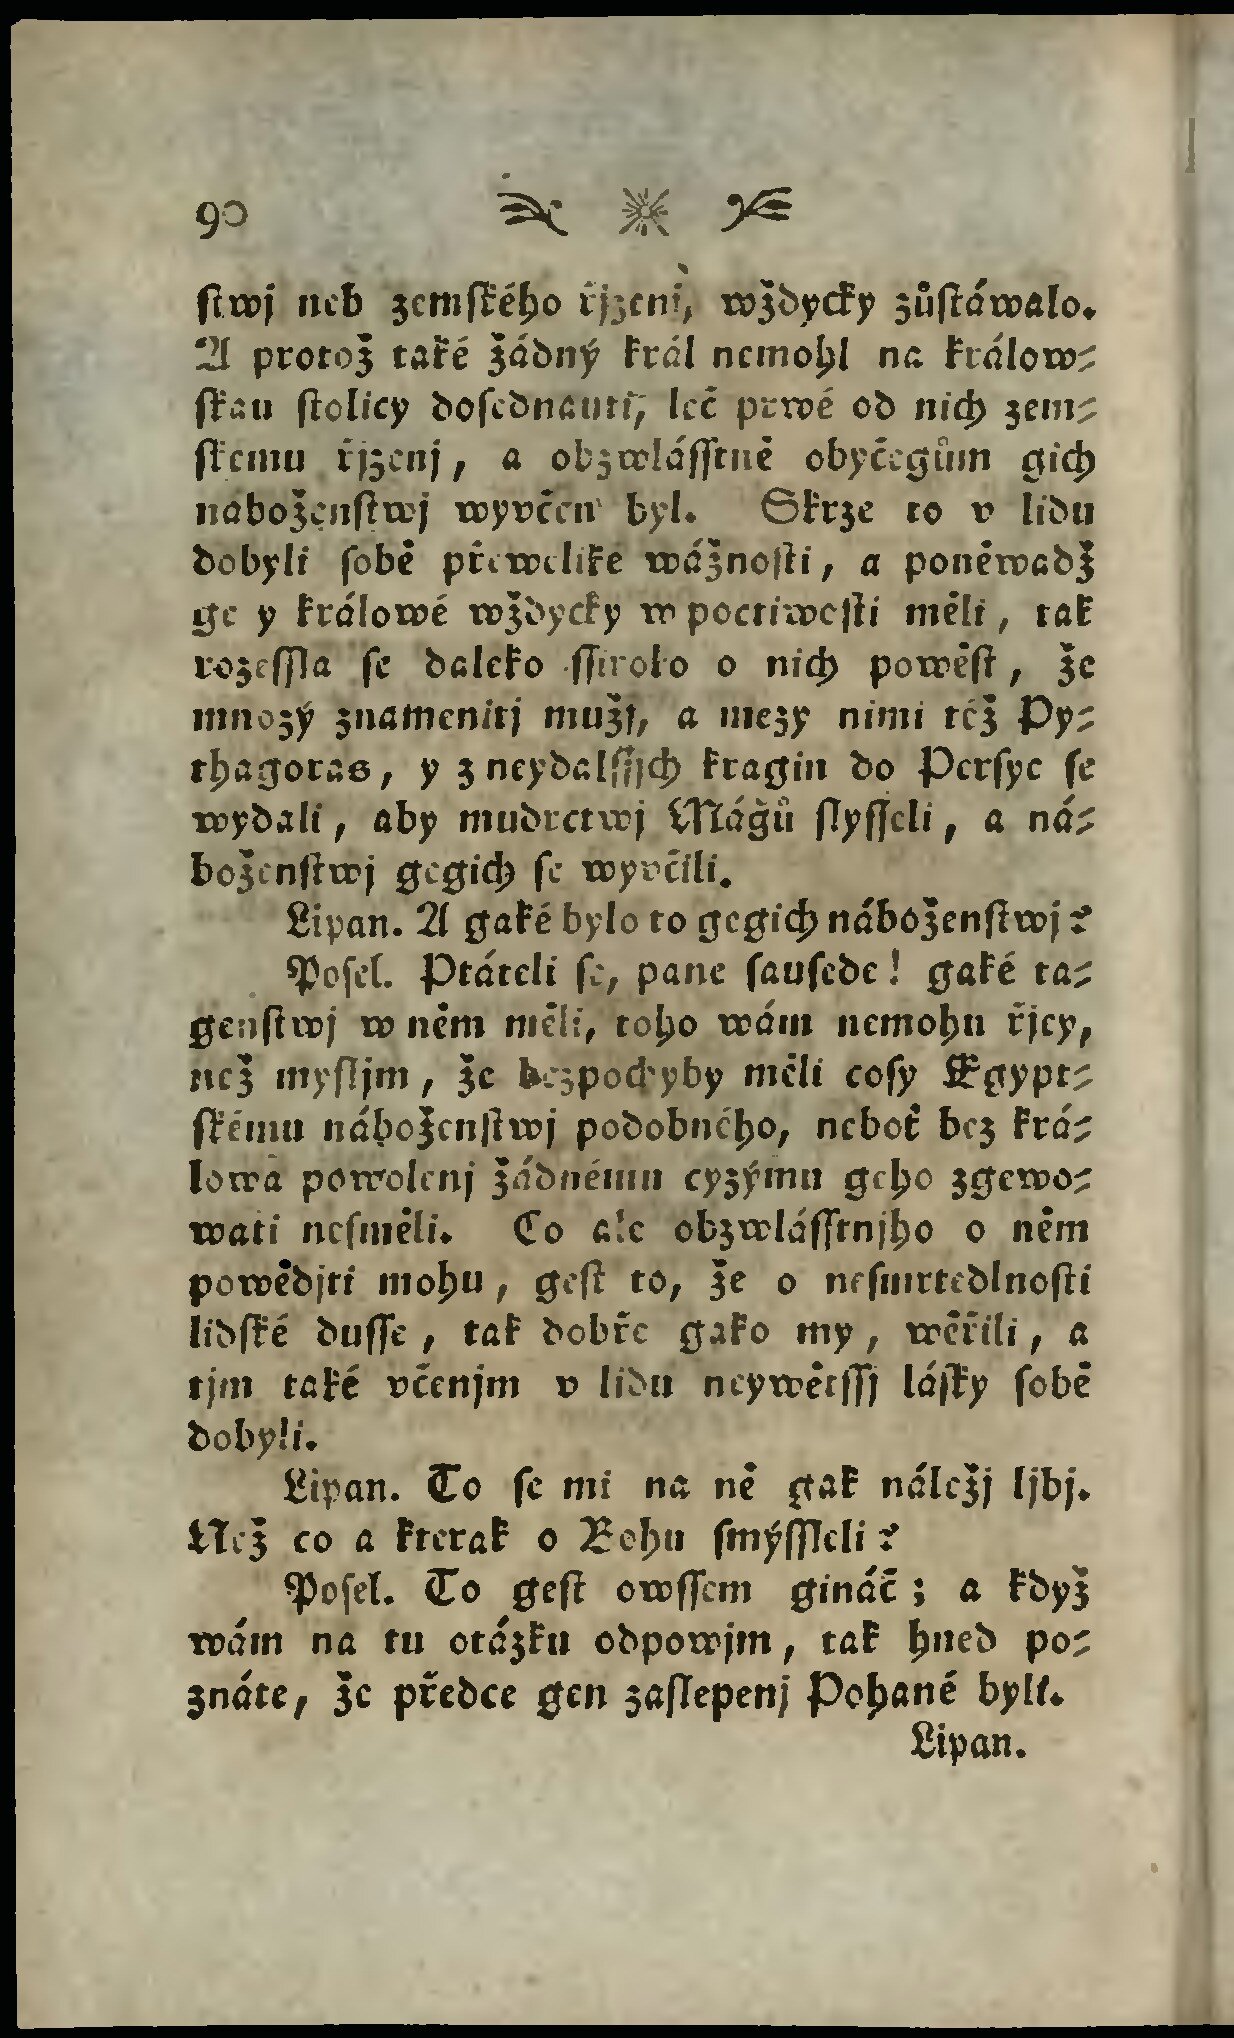 90
ſtwj neb zemſkého řjzenj, wždycky zůſtáwalo.
A protož také žádný král nemohl na králow⸗
ſkau ſtolicy doſednauti, leč prwé od nich zem⸗
ſkemu řjzenj, a obzwláſſtně obyčegům gich
náboženſtwj wyvčen byl. Skrze to v lidu
dobyli ſobě převeliké wážnoſti, a poněwadž
ge y králowé wždycky w poctiwoſti měli, tak
rozeſſla ſe daleko ſſiroko o nich powěſt, že
mnozý znamenitj mužj, a mezy nimi též Py⸗
thagoras, y z neydalſſjch kragin do Perſye ſe
wydali, aby mudrctwj Mágů ſlyſſeli, a ná⸗
boženſtwj gegich ſe wyvčili.
Lipan. A gaké bylo to gegich náboženſtwj?
Poſel. Ptáteli ſe, pane ſauſede! gaké ta⸗
genſtwj w něm měli, toho wám nemohu řjcy,
než myſljm, že bezpochyby měli coſy Egypt⸗
ſkému náboženſtwj podobného, neboť bez krá⸗
lowa powolenj žádnému cyzýmu geho zgewo⸗
wati neſměli. Co ale obzwláſſtnjho o něm
powědjti mohu, geſt to, že o neſmrtedlnoſti
lidſké duſſe, tak dobře gako my, wěřili, a
tjm také včenjm v lidu neywětſſj láſky ſobě
dobyli.
Lipan. To ſe mi na ně gak náležj ljbj.
Než co a kterak o Bohu ſmýſſleli?
Poſel. To geſt owſſem gináč; a když
wám na tu otázku odpowjm, tak hned po⸗
znáte, že předce gen zaſlepenj Pohané byli.
Lipan.